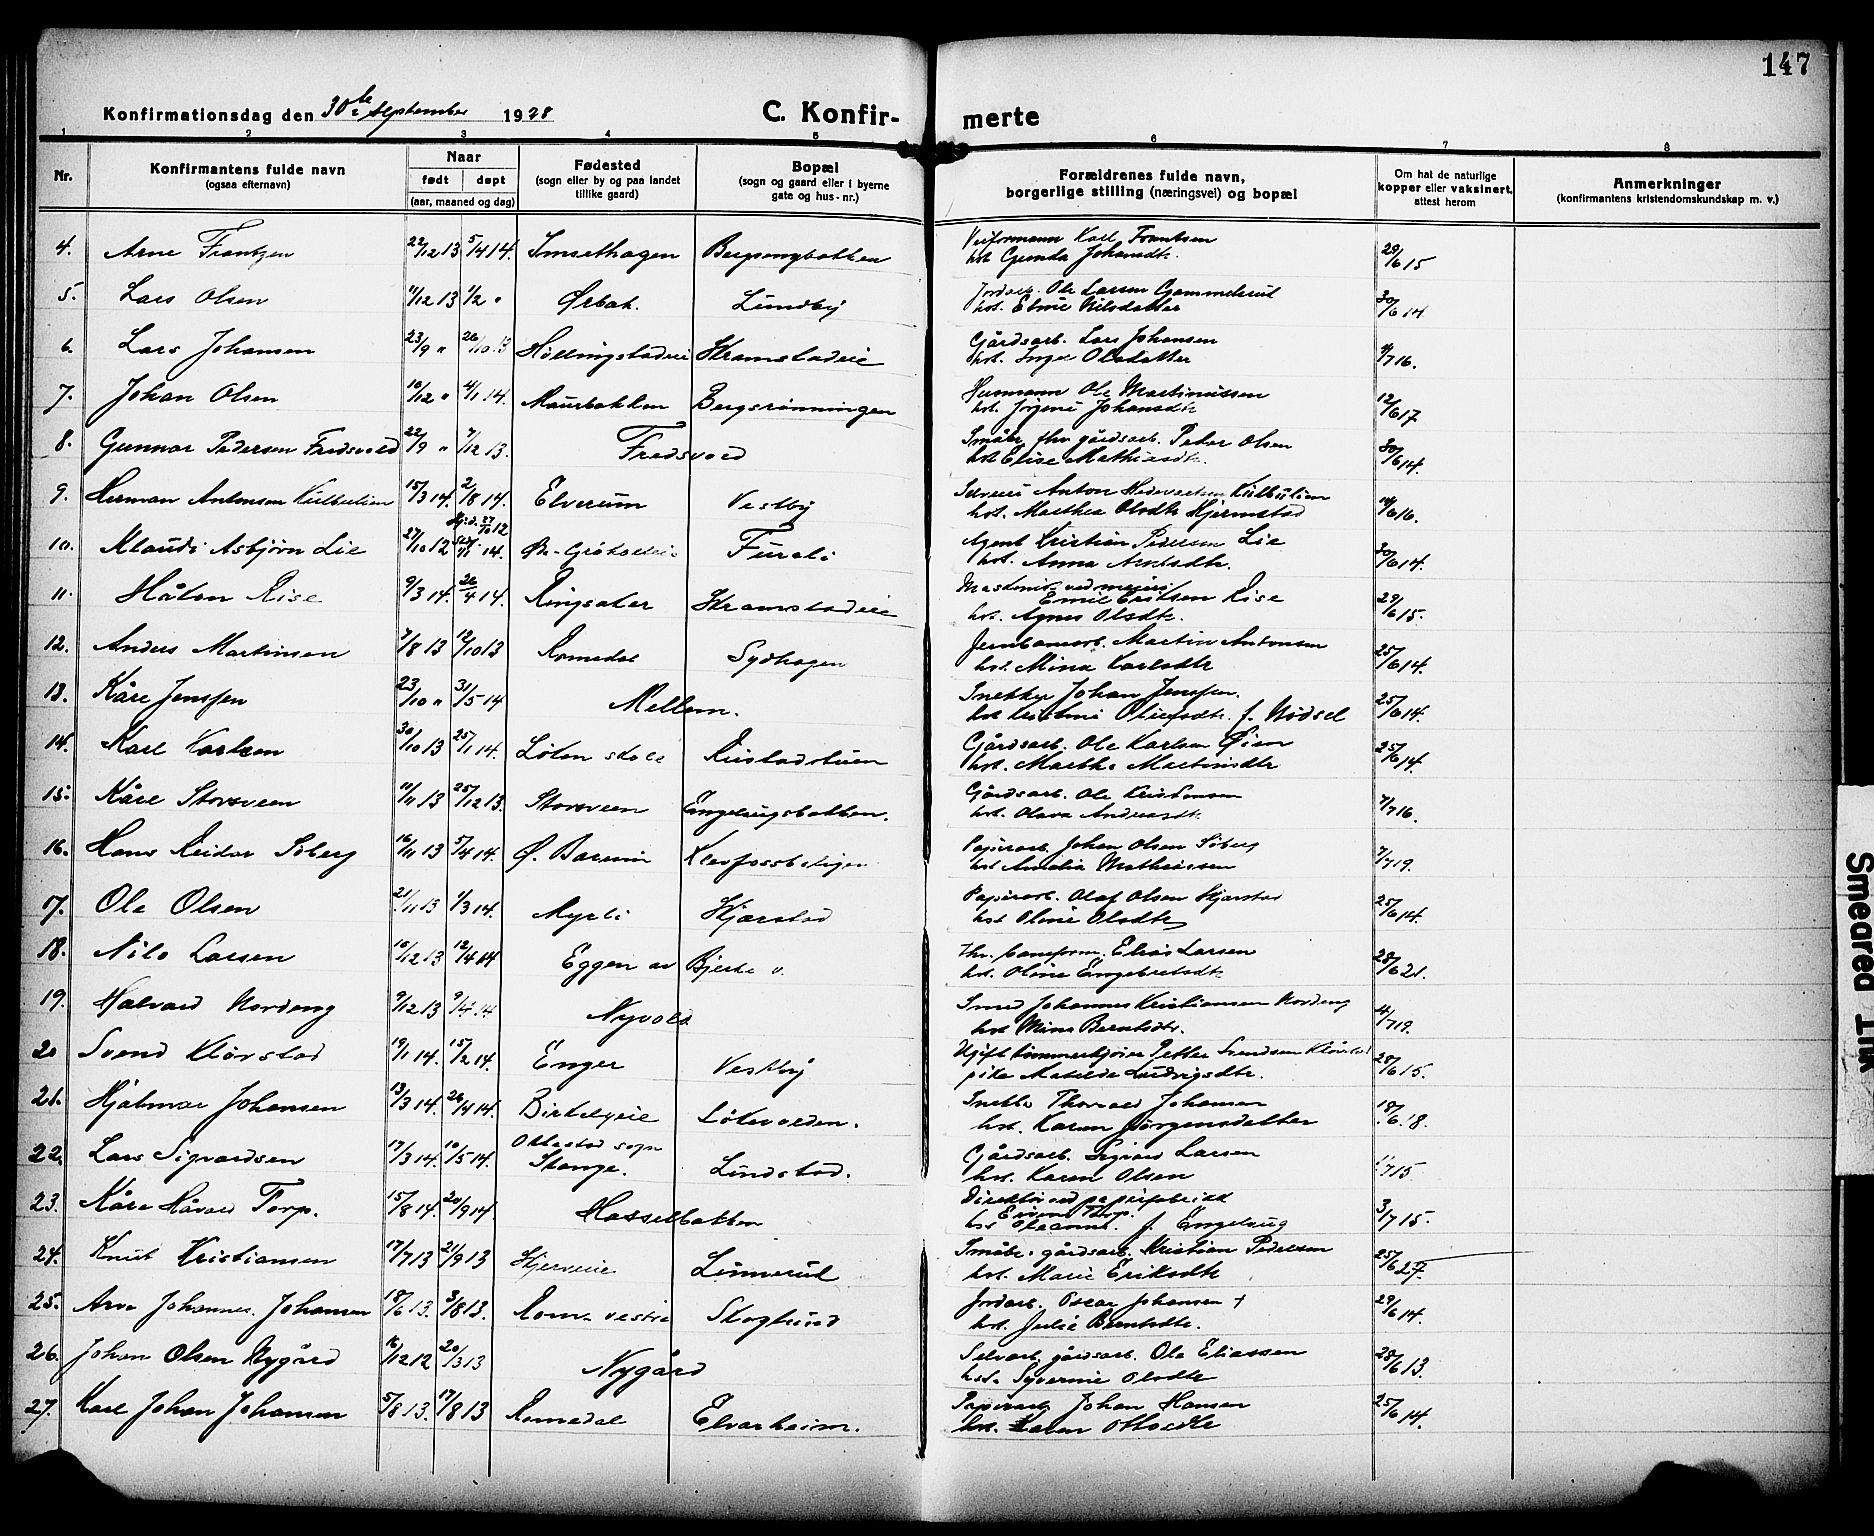 147
Konfirmationsdag den 30te September 1928
C. Konfir- merte
1 2 3 4 5 6 7 8
Nr.
Konfirmantens fulde navn
(ogsaa efternavn)
Naar
født døpt
(aar, maaned og dag)
Fødested
(sogn eller by og paa landet
tillike gaard)
Bopæl
(sogn og gaard eller i byerne
gate og hus-nr.)
Forældrenes fulde navn,
borgerlige stilling (næringsvei) og bopæl
Om hat de naturlige
kopper eller vaksinert,
attest herom
Anmerkninger
(konfirmantens kristendomskundskap m. v.)
4. Arne Frantzen 22/12 13 5/4 14. Imsethagen Bergsengbakken Veiformann Karl Frantsen
hst. Gunda Johansdtr. 29/6 15
5. Lars Olsen 11/12 13 1/2 " Ørbak. Lundby Jordarb. Ole Larsen Gammelsrud
hst. Eline Nilsdatter 30/6 14
6. Lars Johansen 23/9 " 26/10 13 Hollingstadeie Kramstadeie Gårdsarb. Lars Johansen
hst. Inga Olsdatter /7 16.
7. Johan Olsen 10/12 " 4/1 14. Maurbakken Bergsrønningen Husmann Ole Martinussen
hst. Jørgine Johansdtr 12/6 17
8. Gunnar Pedersen Fredsvold 22/9 " 7/12 13. Fredsvold Småbr. fhv gårdsarb. Peder Olsen
hst Elise Mathiasdtr. 30/6 14.
9. Herman Antonsen Kulbulien 15/3 14. 2/8 14. Elverum Vestby Selveier Anton Kulbulien
hst. Marthea Olsdtr Hjermstad /6 16.
10. Klaudi Asbjørn Lie 27/10 12 Hjd. 27/10 12 /1 14. Furuli Agent Kristian Pedersen Lie
hst. Anna Arntsdtr. 30/6 14.
11. Håkon Rise 9/3 14. 26/4 14. Ringsaker Kramstadeie ved meieri
Emil Eriksen Rise
hst. Agnes Olsdtr. 29/6 15.
12. Anders Martinsen 7/8 13 12/10 13 Romedal Sydhagen Jernbanearb. Martin Antonsen
hst. Mina Karlsdtr 25/6 14.
13. Kåre Jenssen 23/10 " 31/5 14 Mellem. Snekker Johan Jenssen.
hst Kristine Olsdtr. f. Nødsel 25/6 14.
14. Karl Karlsen 30/10 13 25/1 14. Løten skole Rustadstuen Gårdsarb. Ole Karlsen Øien
hst. Marthe Martinsdtr 25/6 14.
15. Kåre Storsveen 11/11 13 25/12 13. Storsveen Engelaugsbakken. Gårdsarb. Ole Kristensen
hst. Olava Andreasdtr. 7/7 16.
16. Hans Reidar Søberg 16/11 13 5/4 14. Ø. Klevfossboligen Papirarb. Johan Olsen Søberg
hst Amalia Mathiassen 7/7 19.
17. Ole Olsen 21/11 13 1/3 14. Myrli Hjærstad Papirarb. Olaf Olsen Hjærstad
hst Oline Olsdtr 25/6 14.
18. Nils Larsen 10/12 13 12/4 14 Eggen av Bjerke v. Elias Larsen
hst. Oline Engebretsdtr 28/6 21.
19. Halvard Nordeng 9/12 13 9/4 14 Nyvold Smed Johannes Kristiansen Nordeng
hst Mina Berntsdtr. 4/7 19.
20 Svend Kløvstad 19/1 14. 15/2 14. Enger Vestby Ugift tømmerkjører Petter Svendsen Kløvstad
pike Matilde Ludvigsdtr. 28/6 15.
21. Hjalmar Johansen 13/3 14. 26/4 14. Birkelyeie Løkevolden. Snekker Thorvald Johansen
hst. Karen Jørgensdatter 18/6. 18.
22. Lars Sigvardsen 17/3 14. 10/5 14. Ottestad sogn
Stange. Lundstad. Gårdsarb. Sigvard Larsen
hst. Karen Olsen 1/7 15
23. Kåre Håvard Torp. 15/8 14. 20/9 14. Hasselbakken Direktør ved papirfabrikk
Torp.
hst f. Engelaug 3/7 15.
24. Knut Kristiansen 17/7 13 21/9 13 Hjerveie Linnerud Småbr. gårdsarb. Kristian Pedersen
hst. Marie Eriksdtr 25/6 27.
25. Arve Johannes. Johansen 18/6 13. 3/8 13. Skoglund Jordarb. Oscar Johansen +
hst. Julie Berntsdtr. 29/6 14.
26. Johan Olsen Nygård 16/12 12 20/3 13 Nygård Selvarb. gårdsarb. Ole Eliassen
hst. Syverine Olsdtr 28/6 13.
27. Karl Johan Johansen 5/8 13. 17/8 13 Romedal Elvarheim. Papirarb Johan Hansen
hst. Karen Ottosdtr 25/6 14.
Smeared Ink